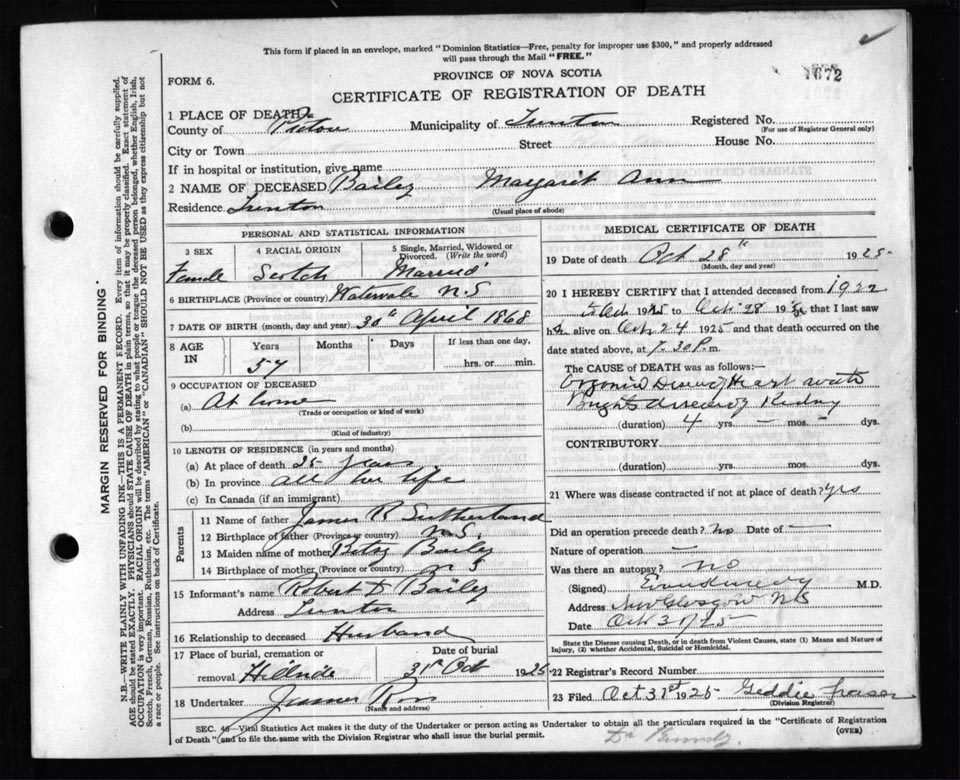 This form if placed in an envelope, marked "Dominion Statistics—Free, penalty for improper use $300," and properly addressed
will pass through the Mail "FREE."
PROVINCE OF NOVA SCOTIA
1672
FORM 6.
CERTIFICATE OF REGISTRATION OF DEATH
1 PLACE OF DEATH
County of Pictou Municipality of Registered No.
(For use of Registrar General only)
City or Town Street House No.
If in hospital or institution, give name
2 NAME OF DECEASED Bailey Margaret Ann
Residence
(Usual place of abode)
PERSONAL AND STATISTICAL INFORMATION
3 SEX 4 RACIAL ORIGIN 5 Single, Married, Widowed or Divorced. (Write the word)
Female Scotch Married
6 BIRTHPLACE (Province or country) Watervale N.S
7 DATE OF BIRTH (month, day and year) 30th April 1868
8 AGE IN Years Months Days If less than one day,
57 hrs. or min.
9 OCCUPATION OF DECEASED
(a) At home
(Trade or occupation or kind of work)
(b)
(Kind of industry)
10 LENGTH OF RESIDENCE (in years and months)
(a) At place of death 35 years
(b) In province all her life
(c) In Canada (if an immigrant)
Parents
11 Name of father James R Sutherland
12 Birthplace of father (Province or country) N.S.
13 Maiden name of mother Bailey
14 Birthplace of mother (Province or country) N S
15 Informant's name Robert Bailey
Address
16 Relationship to deceased Husband
17 Place of burial, cremation or removal Date of burial
Hillside 31st Oct 1925
18 Undertaker James Ross
(Name and address)
MEDICAL CERTIFICATE OF DEATH
19 Date of death Oct 28th 1925
(Month, day and year)
20 I HEREBY CERTIFY that I attended deceased from 1922
to Oct 1925 to Oct 28 19 that I last saw
h alive on Oct 24 1925 and that death occurred on
date stated above, at 7.30 P.m.
The CAUSE OF DEATH was as follows:—
Organic Disease of Heart
Brights disease of Kidney
(duration) 4 yrs. – mos. – dys.
CONTRIBUTORY
(duration) yrs. mos. dys.
21 Where was disease contracted if not at place of death? yes
Did an operation precede death? no Date of —
Nature of operation —
Was there an autopsy? NO
(Signed) M.D.
Address New Glasgow NS
Date Oct 31/25
State the Disease causing Death, or in death from Violent Causes, state (1) Means and Nature of
Injury, (2) whether Accidental, Suicidal or Homicidal.
22 Registrar's Record Number
23 Filed Oct 31st 1925 Geddie Fraser
(Division Registrar)
SEC. 46—Vital Statistics Act makes it the duty of the Undertaker or person acting as Undertaker to obtain all the particulars required in the "Certificate of Registration
of Death" and to file the same with the Division Registrar who shall issue the burial permit.
(OVER)
MARGIN RESERVED FOR BINDING
N.B.—WRITE PLAINLY WITH UNFADING INK—THIS IS A PERMANENT RECORD. Every item of information should be carefully supplied.
AGE should be stated EXACTLY. PHYSICIANS should STATE CAUSE OF DEATH in plain terms, so that it may be properly classified. Exact statement of
OCCUPATION is very important. RACIAL ORIGIN will be described by stating to what people or tongue the deceased person belonged, whether English, Irish,
Scotch, French, German, Russian, Ruthenian, etc. The terms "AMERICAN" or "CANADIAN" SHOULD NOT BE USED as they express citizenship but not
a race or people. See instructions on back of Certificate.